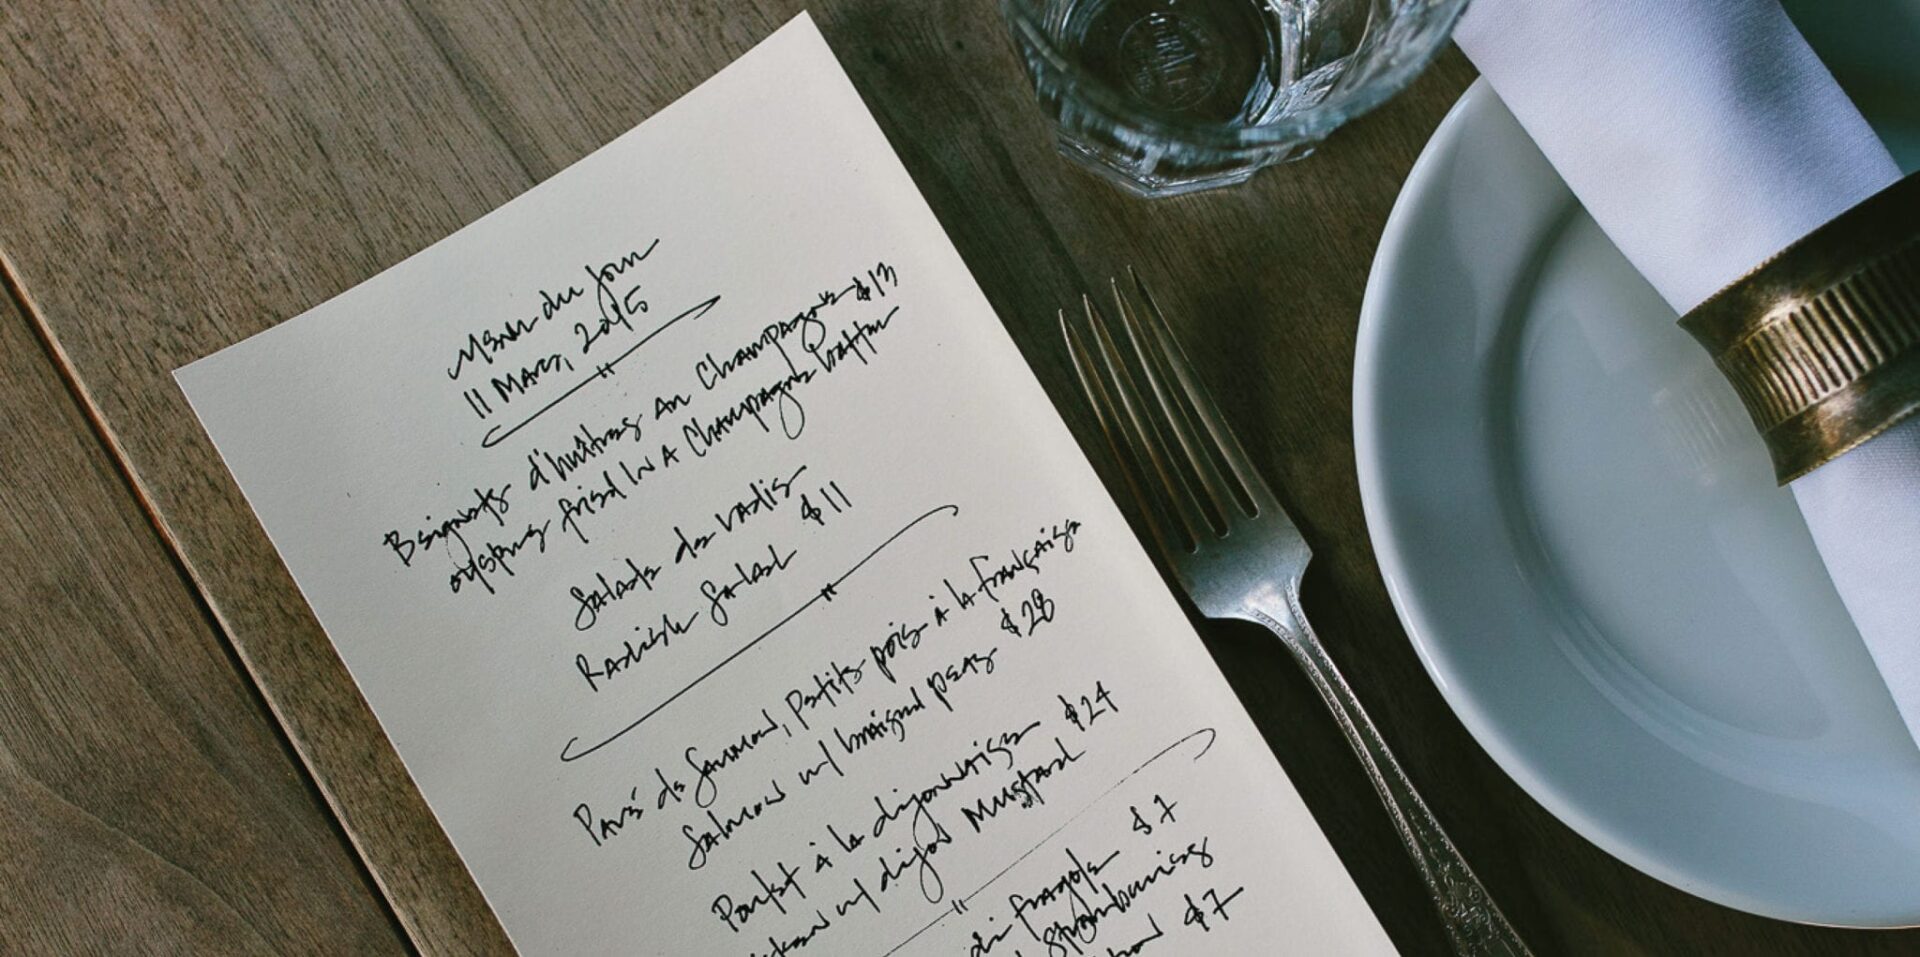 Menu du jour
11 Mars, 2015
Beignets d'huîtres au Champagne $13
oysters fried in a Champagne batter
Salade de radis
Radish Salad $11
Pavé de Saumon, petits pois à la française
Salmon w/ braised peas $28
Poulet à la dijonnaise $24
w/ dijon Mustard
di fragole $7
Strawberries
$7